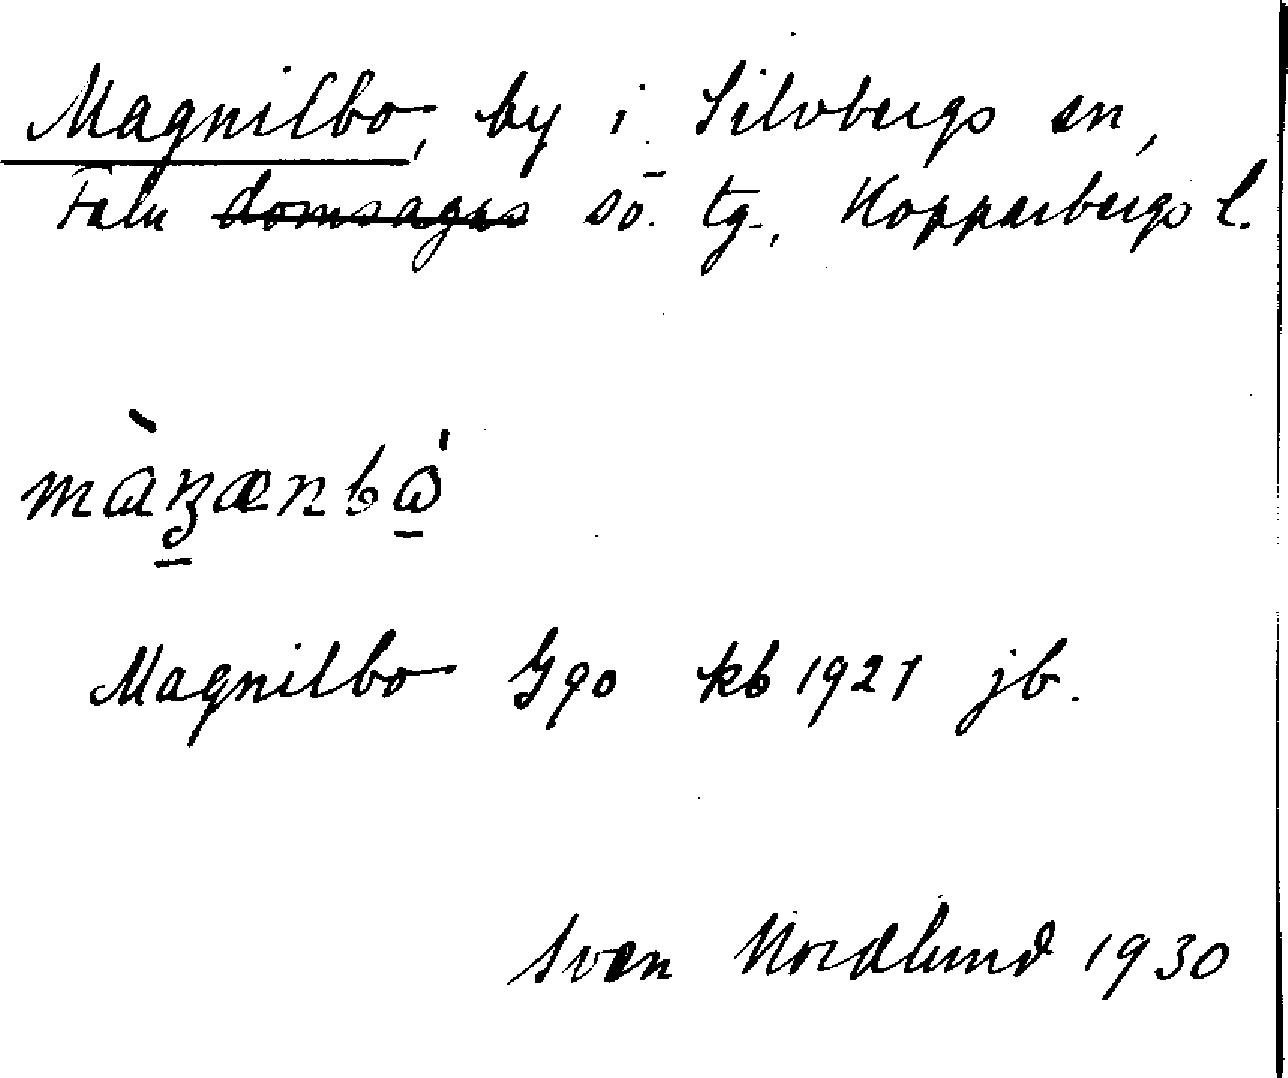 Magnilbo, by i Silvbergs sn,
Falu domsagas sö. tg., Kopparbergs l.
Magnilbo Ggo kb 1921 jb.
Sven Nordlund 1930